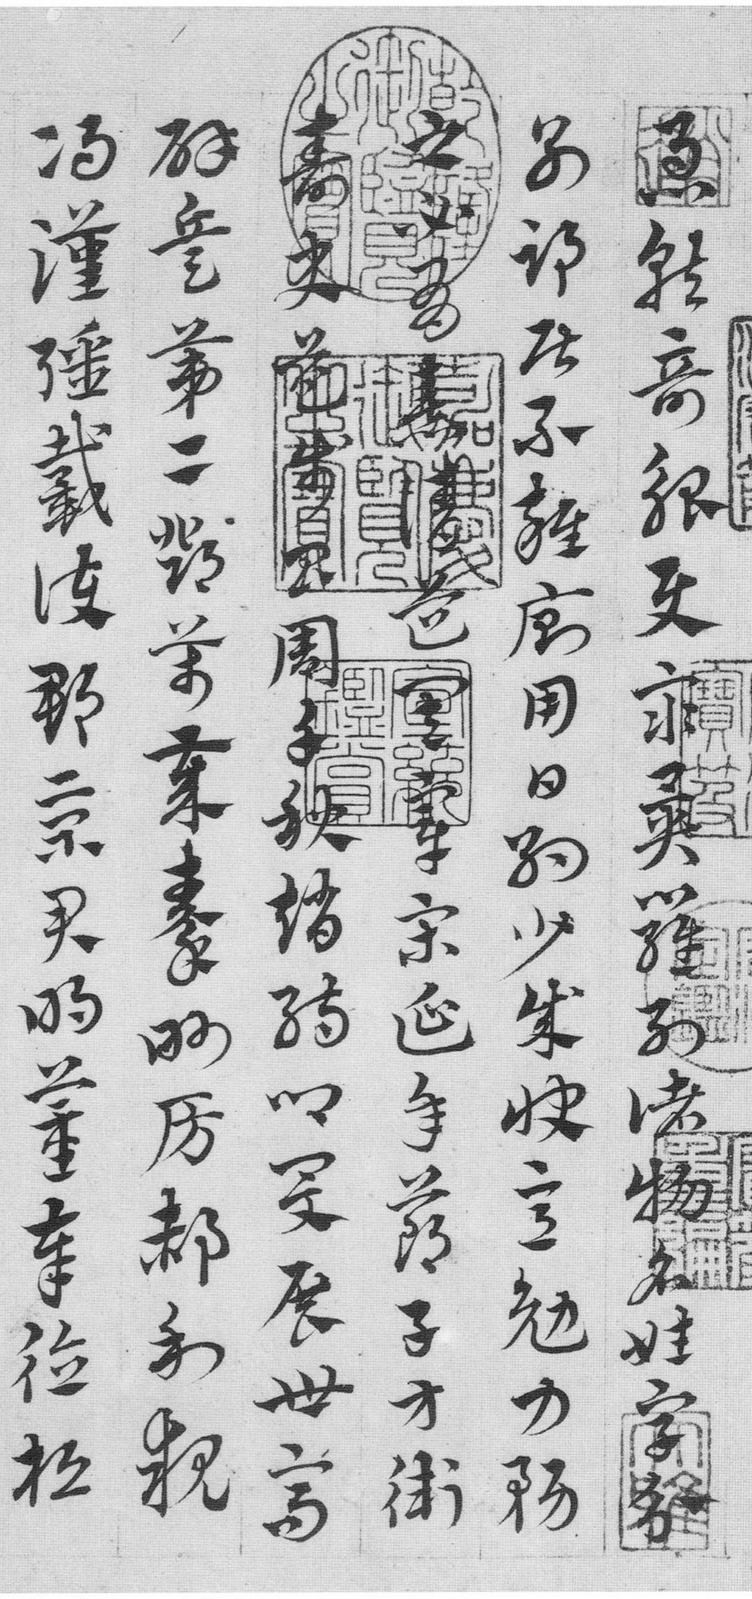 急就奇觚與衆異羅列諸物名姓字分
別部居不雜廁用日約少誠快意勉力務
之必有憙請道其章宋延年鄭子方衛
壽史步昌周千秋趙孺卿爰展世高
辟兵第二鄧萬歲秦眇房郝利親
馮漢彊戴護郡景君明董奉德桓